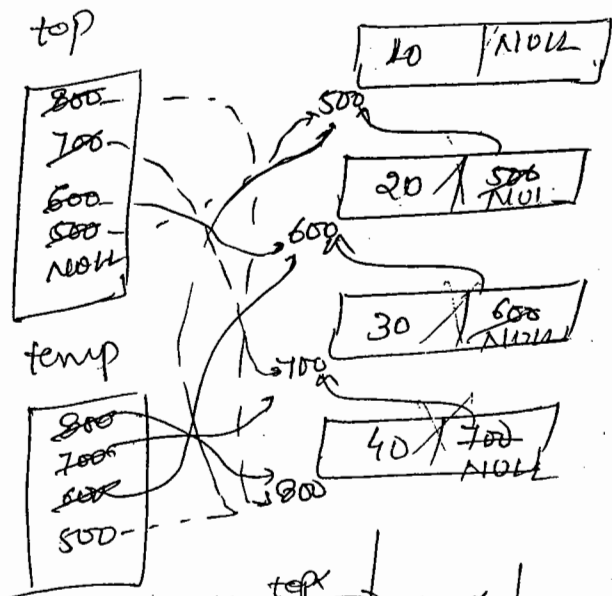 top
800
700
600
500
NULL
temp
800
700
600
500
10 NULL
500
20 500
NUL
600
30 600
NULL
700
40 700
NULL
800
top